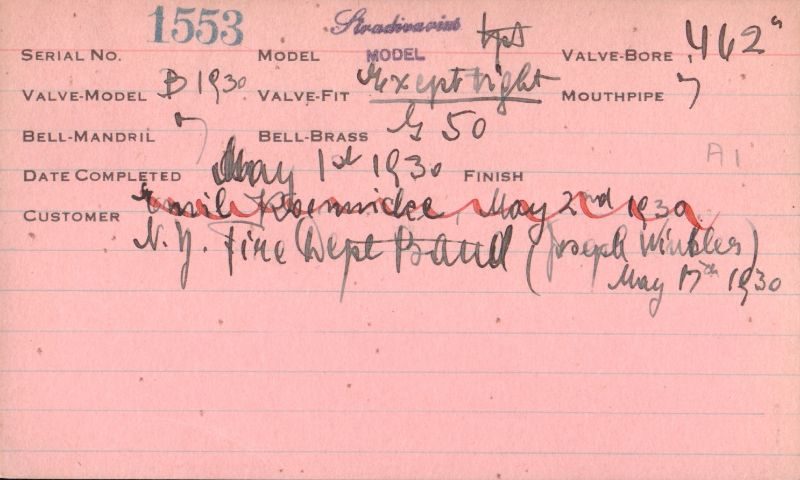 SERIAL NO. 1553 MODEL Stradivarius MODEL tpt VALVE-BORE .462"
VALVE-MODEL B 1930 VALVE-FIT Except tight MOUTHPIPE 7
BELL-MANDRIL 7 BELL-BRASS G 50
A1
DATE COMPLETED May 1st 1930 FINISH
CUSTOMER Emil May 2nd 1930
N.Y. Fire Dept Band (Joseph Winkler)
May 17th 1930